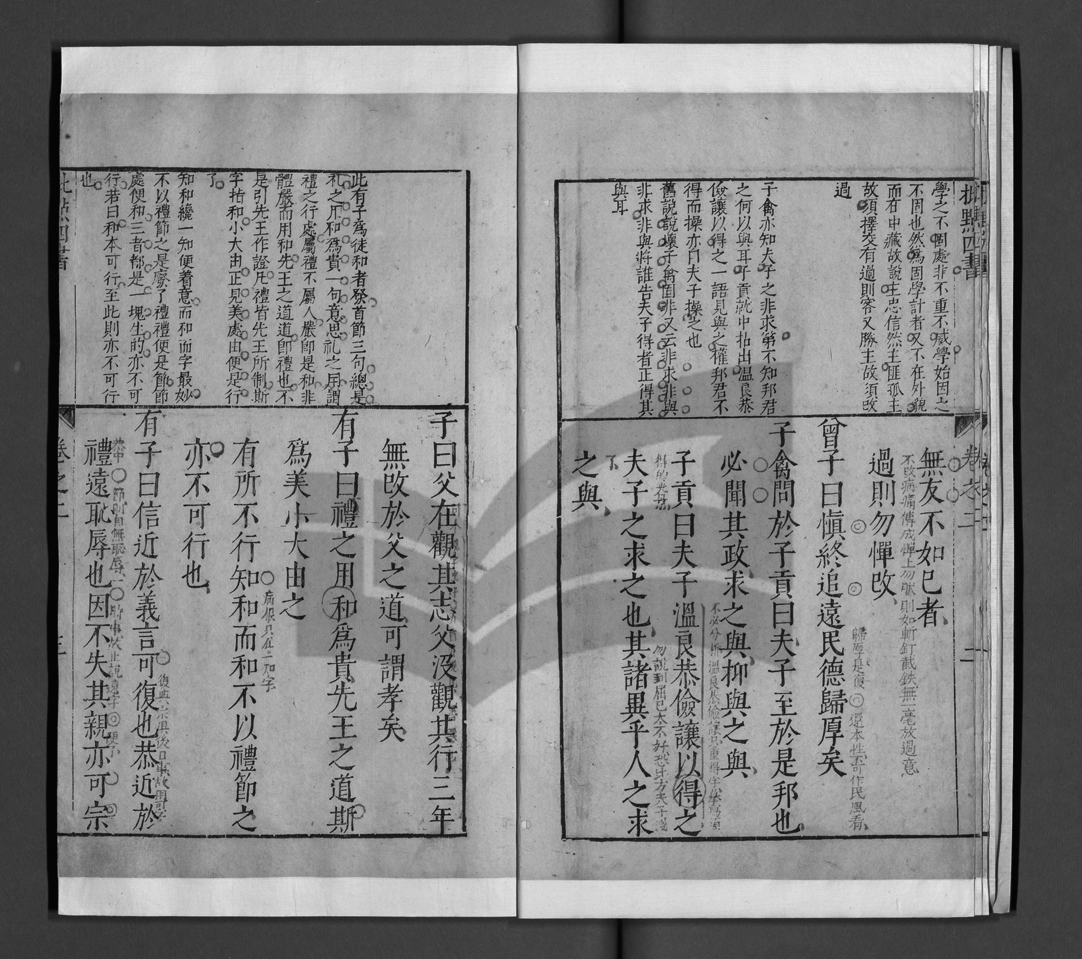 批點四書
學之不固處非不重不威學始固之
不固也然爲固學計者又不在外貌
而在中藏故說主忠信然主匪孤主
故須擇交有過則客又勝主故須改
過
子禽亦知夫子之非求第不知邦君
之何以與耳子貢就中拈出溫良恭
儉讓以得之一語見與之權邦君不
得而操亦曰夫子操之也
舊說說壞子禽固非又云非求非與
非求非與將誰告夫子得者正得其
與耳
無友不如己者
過則勿憚改
曾子曰愼終追遠民德歸厚矣
子禽問於子貢曰夫子至於是邦也
必聞其政求之與抑與之與
子貢曰夫子溫良恭儉讓以得之
夫子之求之也其諸異乎人之求
之與
卷之二
二
此有子爲徒和者發首節三句總是
礼之用和爲貴一句意思礼之用謂
禮之行處屬禮不屬人嚴卽是和非
體嚴而用和先王之道道卽禮也不
是引先王作證凡禮皆先王所制斯
字指和小大由正見美處由便是行
了
知和纔一知便着意而和而字最妙
不以禮節之是廢了禮禮便是節節
處便和三者都是一塊生的亦不可
行若曰和本可行至此則亦不可行
也
子曰父在觀其志父沒觀其行三年
無改於父之道可謂孝矣
有子曰禮之用和爲貴先王之道斯
爲美小大由之
有所不行知和而和不以禮節之
病根只在二和字
亦不可行也
有子曰信近於義言可復也恭近於
禮遠恥辱也因不失其親亦可宗
卷之二